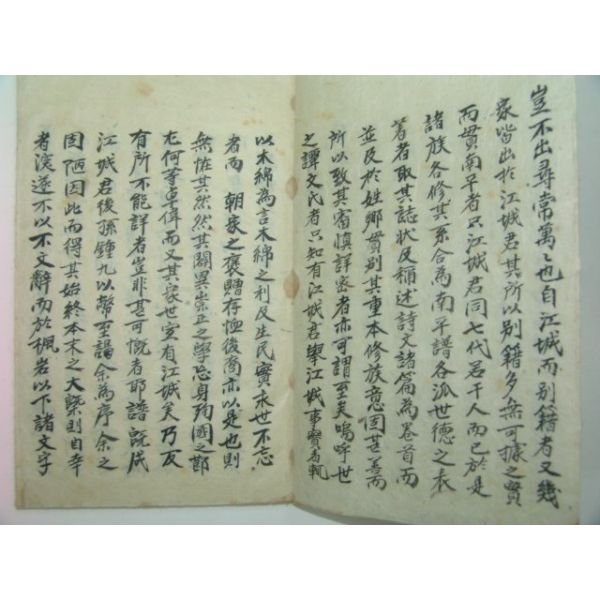 豈不出尋常萬々也自江城而別籍者又幾
家皆出於江城君其所以別籍多無可據之實
而貫南平者只江城君同七代若干人而已於是
諸族各修其系合為南平譜各派世德之表
著者取其誌狀及稱述詩文諸篇為卷首而
並及於姓鄉貫別其重本修族意固甚善而
所以致其審慎詳密者亦可謂至矣嗚呼世
之譚文氏者只知有江城君擧江城事實者輒
以木綿為言木綿之利及生民實永世不忘
者而 朝家之褒贈存恤後裔亦以是也則
無恠其然然其闢異崇正之學忘身殉國之節
尤何等卓偉而又其家世宜有江城矣乃反
有所不能詳者豈非甚可慨者耶譜旣成
江城君後孫鍾九以幣至謁余為序余之
固陋因此而得其始終本末之大槩則自幸
者深遂不以不文辭而於楓岩以下諸文字